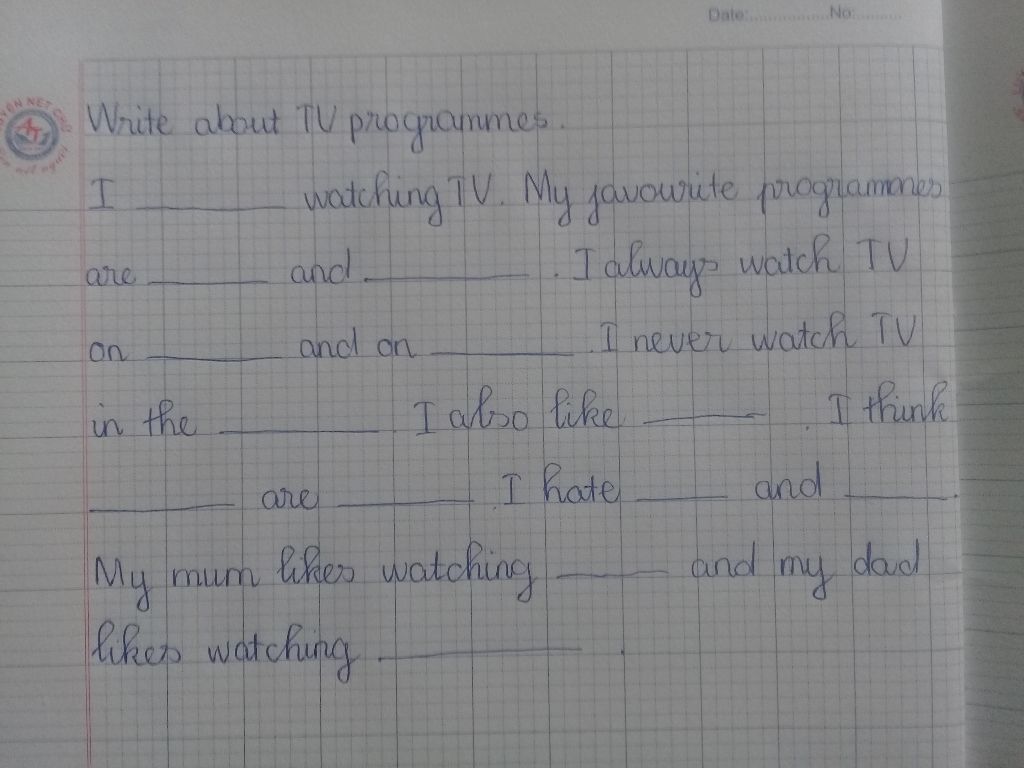 Date:................No:..........
Write about TV programmes.
I __________ watching TV. My favourite programmes
are ________ and ___________ . I always watch TV
on _________ and on _________ . I never watch TV
in the ___________ . I also like ________ . I think
__________ are _________ . I hate ______ and _______.
My mum likes watching _______ and my dad
likes watching _____________ .